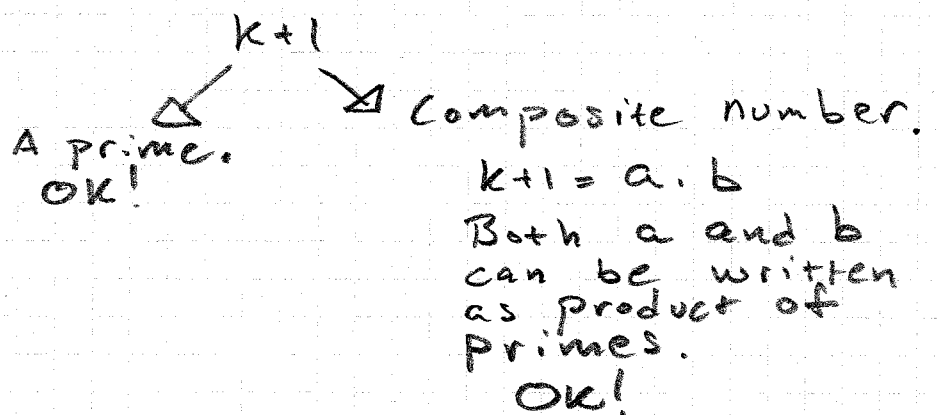 k+1
A prime.
OK!
Composite number.
k+1 = a . b
Both a and b
can be written
as product of
primes.
OK!